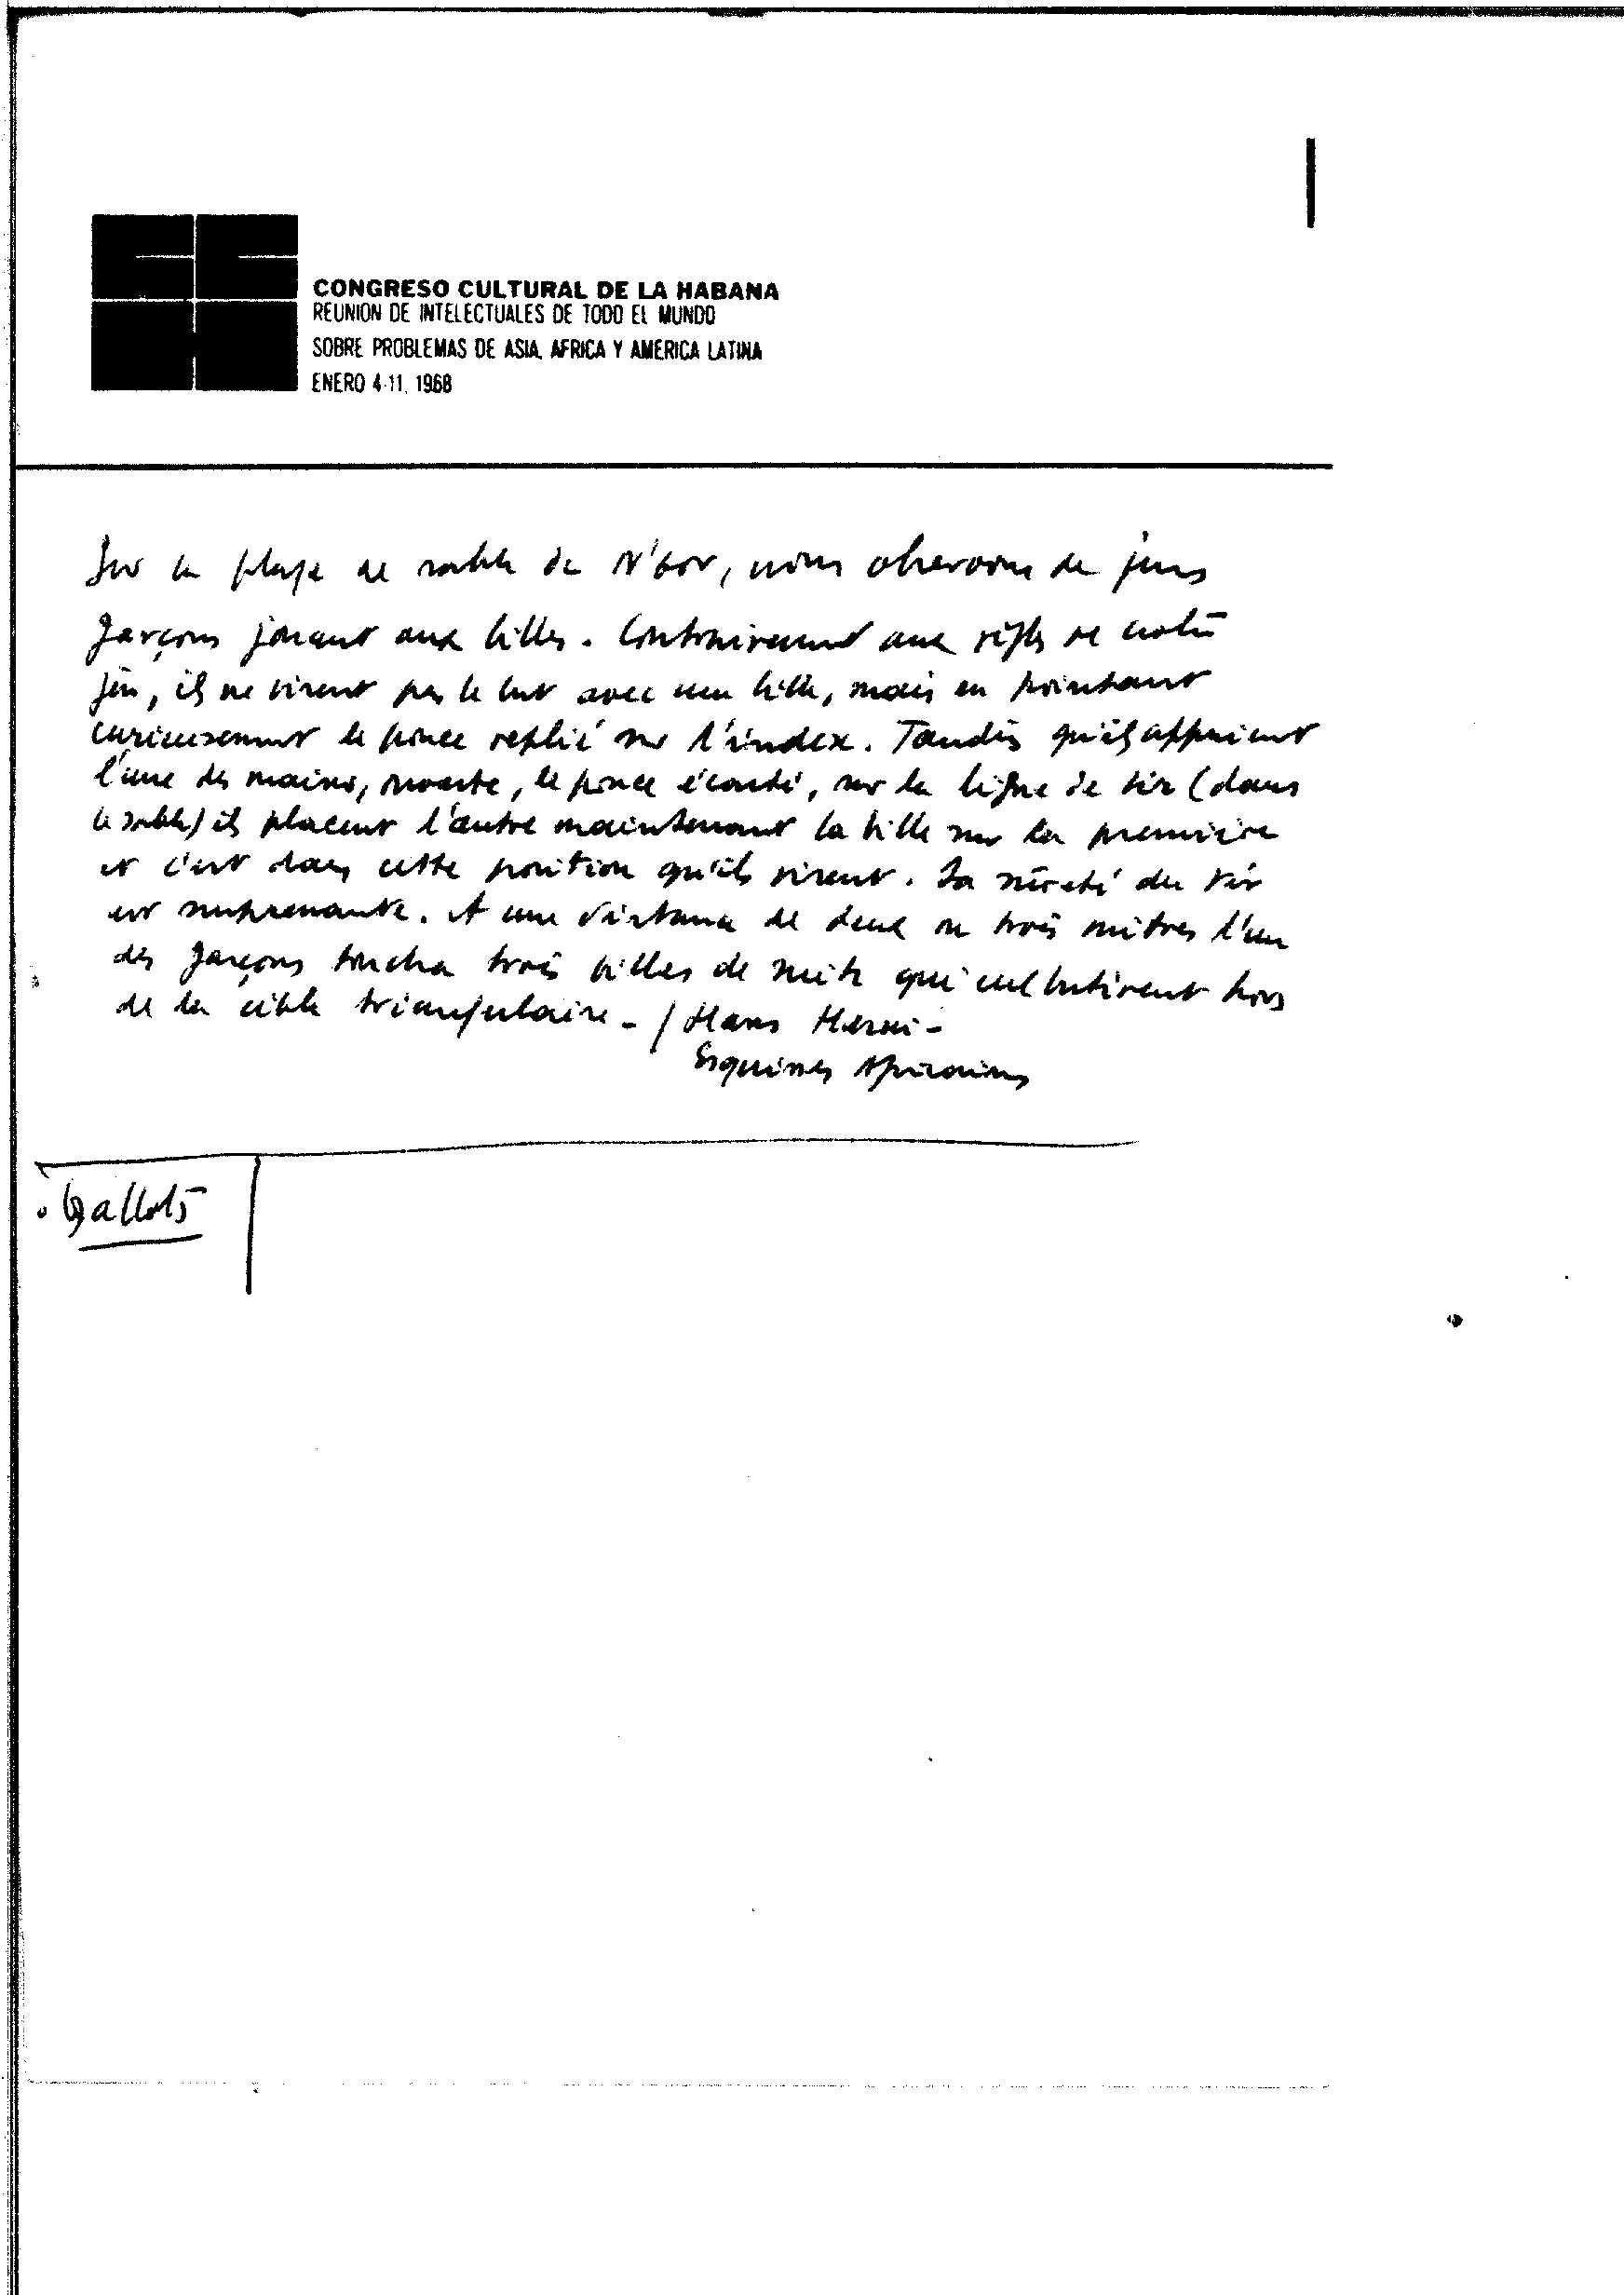 CONGRESO CULTURAL DE LA HABANA
REUNION DE INTELECTUALES DE TODO EL MUNDO
SOBRE PROBLEMAS DE ASIA, AFRICA Y AMERICA LATINA
ENERO 4-11, 1968
Sur la plage de sable de N'Gor, nous observons de jeunes
garçons jouant aux billes. Contrairement aux règles de notre
jeu, ils ne visent pas le but avec une bille, mais en pointant
curieusement le pouce replié sur l'index. Tandis qu'ils appuient
l'une des mains, ouverte, le pouce écarté, sur la ligne de tir (dans
le sable) ils placent l'autre maintenant la bille sur la première
et c'est dans cette position qu'ils visent. La sûreté du tir
est surprenante. A une distance de deux ou trois mètres l'un
des garçons toucha trois billes de suite qui culbutèrent hors
de la cible triangulaire - / Hans Herni -
Esquisses Africaines